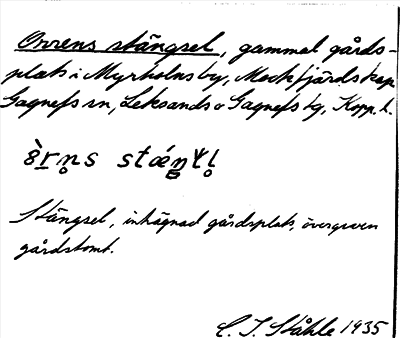 Orrens stängsel, gammal gårds-
plats i Myrholns by, Mockfjärds kap.
Gagnefs sn, Leksands o Gagnefs tg, Kopp. l.
Stängsel, inhägnad gårdsplats, övergiven
gårdstomt.
C. I. Ståhle 1935